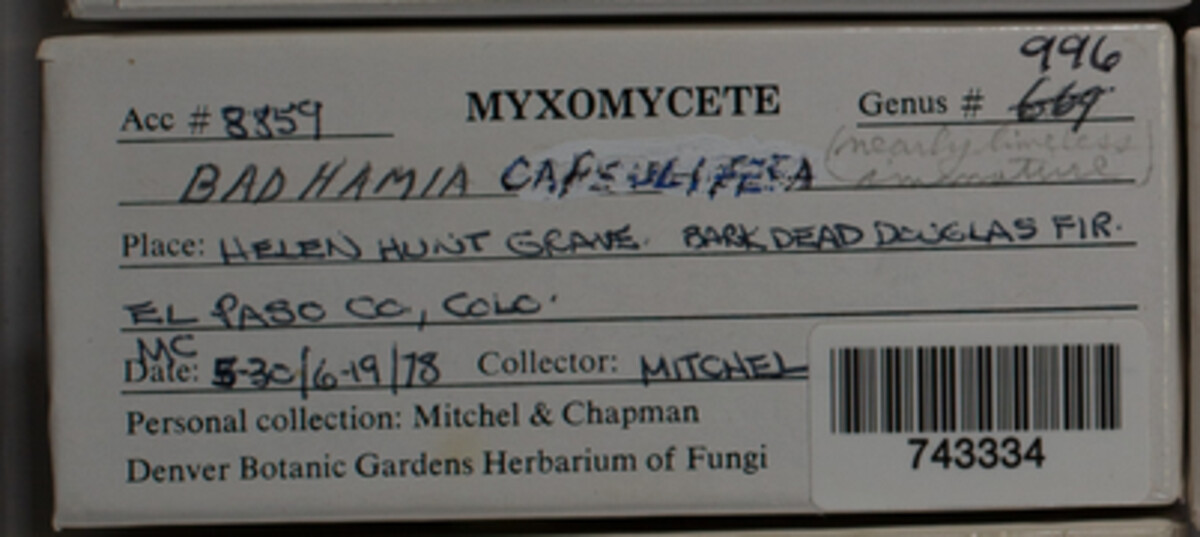 996
Acc # 8859 MYXOMYCETE Genus # 669
BADHAMIA CAPSULIFERA (nearly limeless
immature)
Place: HELEN HUNT GRAVE. BARK DEAD DOUGLAS FIR.
EL PASO CO, COLO.
MC
Date: 5-30/6-19/78 Collector: MITCHEL
Personal collection: Mitchel & Chapman
Denver Botanic Gardens Herbarium of Fungi
743334